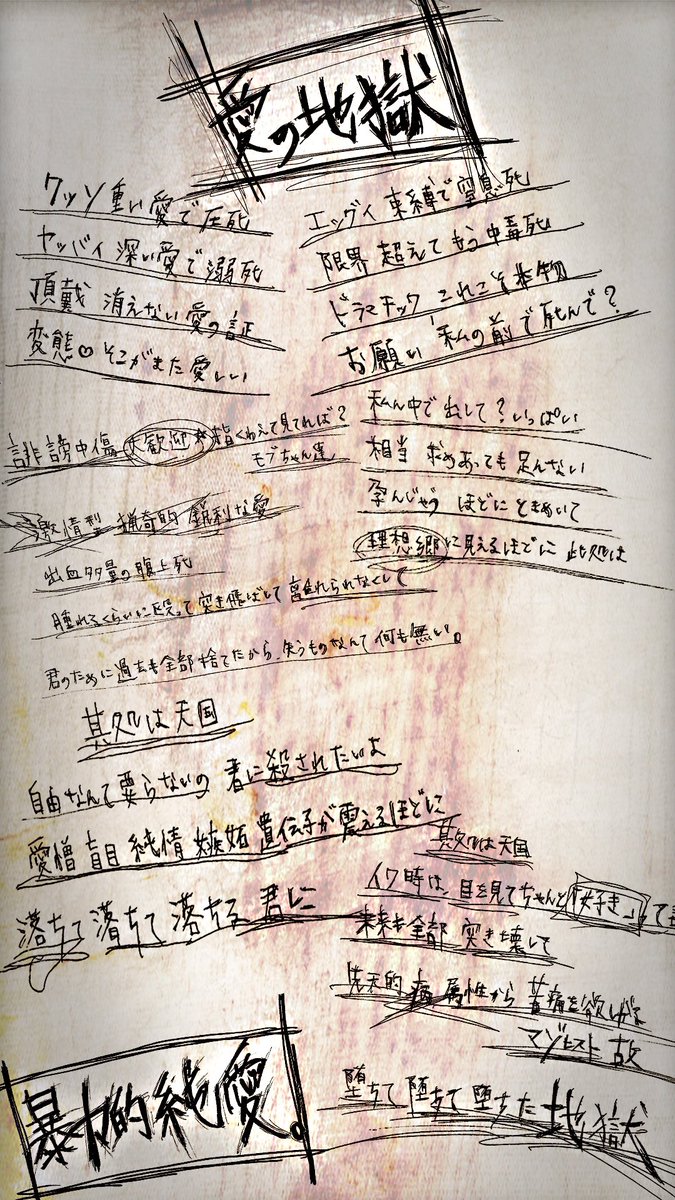 愛の地獄
クッソ重い愛で圧死
ヤッバイ深い愛で溺死
頂戴 消えない愛の証
変態♡そこがまた愛しい
エッグイ束縛で窒息死
限界超えてもう中毒死
ドラマチック これこそ本物
お願い 私の前で死んで?
誹謗中傷 大歓迎 指くわえて見てれば?
モブちゃん達
激情型 猟奇的 鋭利な愛
出血多量の腹上死
腫れるくらいに殴って 突き飛ばして 離れられなくして
君のために過去も全部捨てたから、失うものなんて何も無い。
私ん中で出して?いっぱい
相当 求めあっても足んない
孕んじゃう ほどにときめいて
理想郷に見えるほどに 此処は
其処は天国
自由なんて要らないの 君に殺されたいよ
愛憎 盲目 純情 嫉妬 遺伝子が震えるほどに
落ちて 落ちて 落ちる 君に
其処は天国
イク時は、目を見てちゃんと「好き」って
未来も全部 突き壊して
先天的 病 属性から 苦痛を欲しがる
マゾヒスト故
堕ちて 堕ちて 堕ちた 地獄
暴力的純愛。